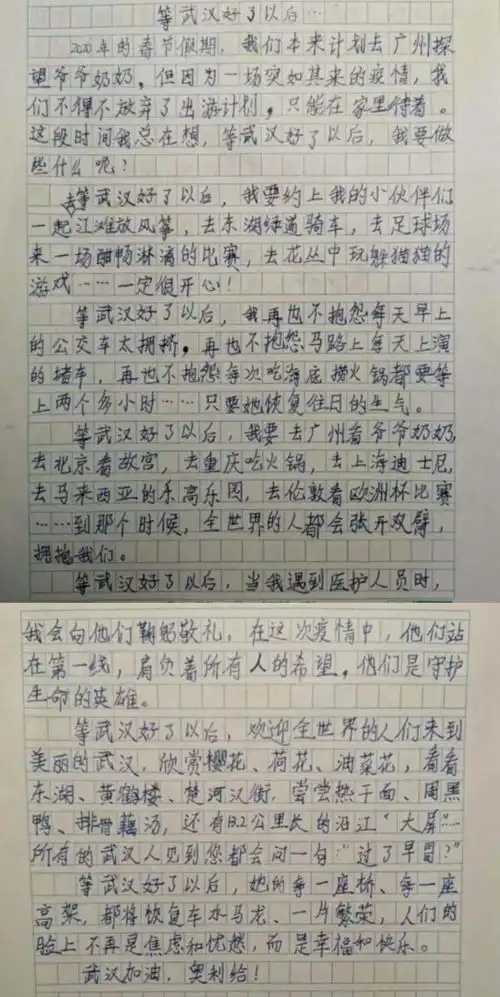 等武汉好了以后…
2020年的春节假期，我们本来计划去广州探
望爷爷奶奶，但因为一场突如其来的疫情，我
们不得不放弃了出游计划，只能在家里待着。
这段时间我总在想，等武汉好了以后，我要做
些什么呢？
等武汉好了以后，我要约上我的小伙伴们
一起江滩放风筝，去东湖绿道骑车，去足球场
来一场酣畅淋漓的比赛，去花丛中玩躲猫猫的
游戏……一定很开心！
等武汉好了以后，我再也不抱怨每天早上
的公交车太拥挤，再也不抱怨马路上每天上演
的堵车，再也不抱怨每次吃海底捞火锅都要等
上两个多小时……只要她恢复往日的生气。
等武汉好了以后，我要去广州看爷爷奶奶，
去北京看故宫，去重庆吃火锅，去上海迪士尼，
去马来西亚的乐高乐园，去伦敦看欧洲杯比赛
……到那个时候，全世界的人都会张开双臂，
拥抱我们。
等武汉好了以后，当我遇到医护人员时，
我会向他们鞠躬敬礼，在这次疫情中，他们站
在第一线，肩负着所有人的希望，他们是守护
生命的英雄。
等武汉好了以后，欢迎全世界的人们来到
美丽的武汉，欣赏樱花、荷花、油菜花，看看
东湖、黄鹤楼、楚河汉街，尝尝热干面、周黑
鸭、排骨藕汤，还有13.2公里长的沿江“大屏”…
所有的武汉人见到您都会问一句：“过了早冒？”
等武汉好了以后，她的每一座桥、每一座
高架，都将恢复车水马龙、一片繁荣，人们的
脸上不再是焦虑和忧愁，而是幸福和快乐。
武汉加油，奥利给！